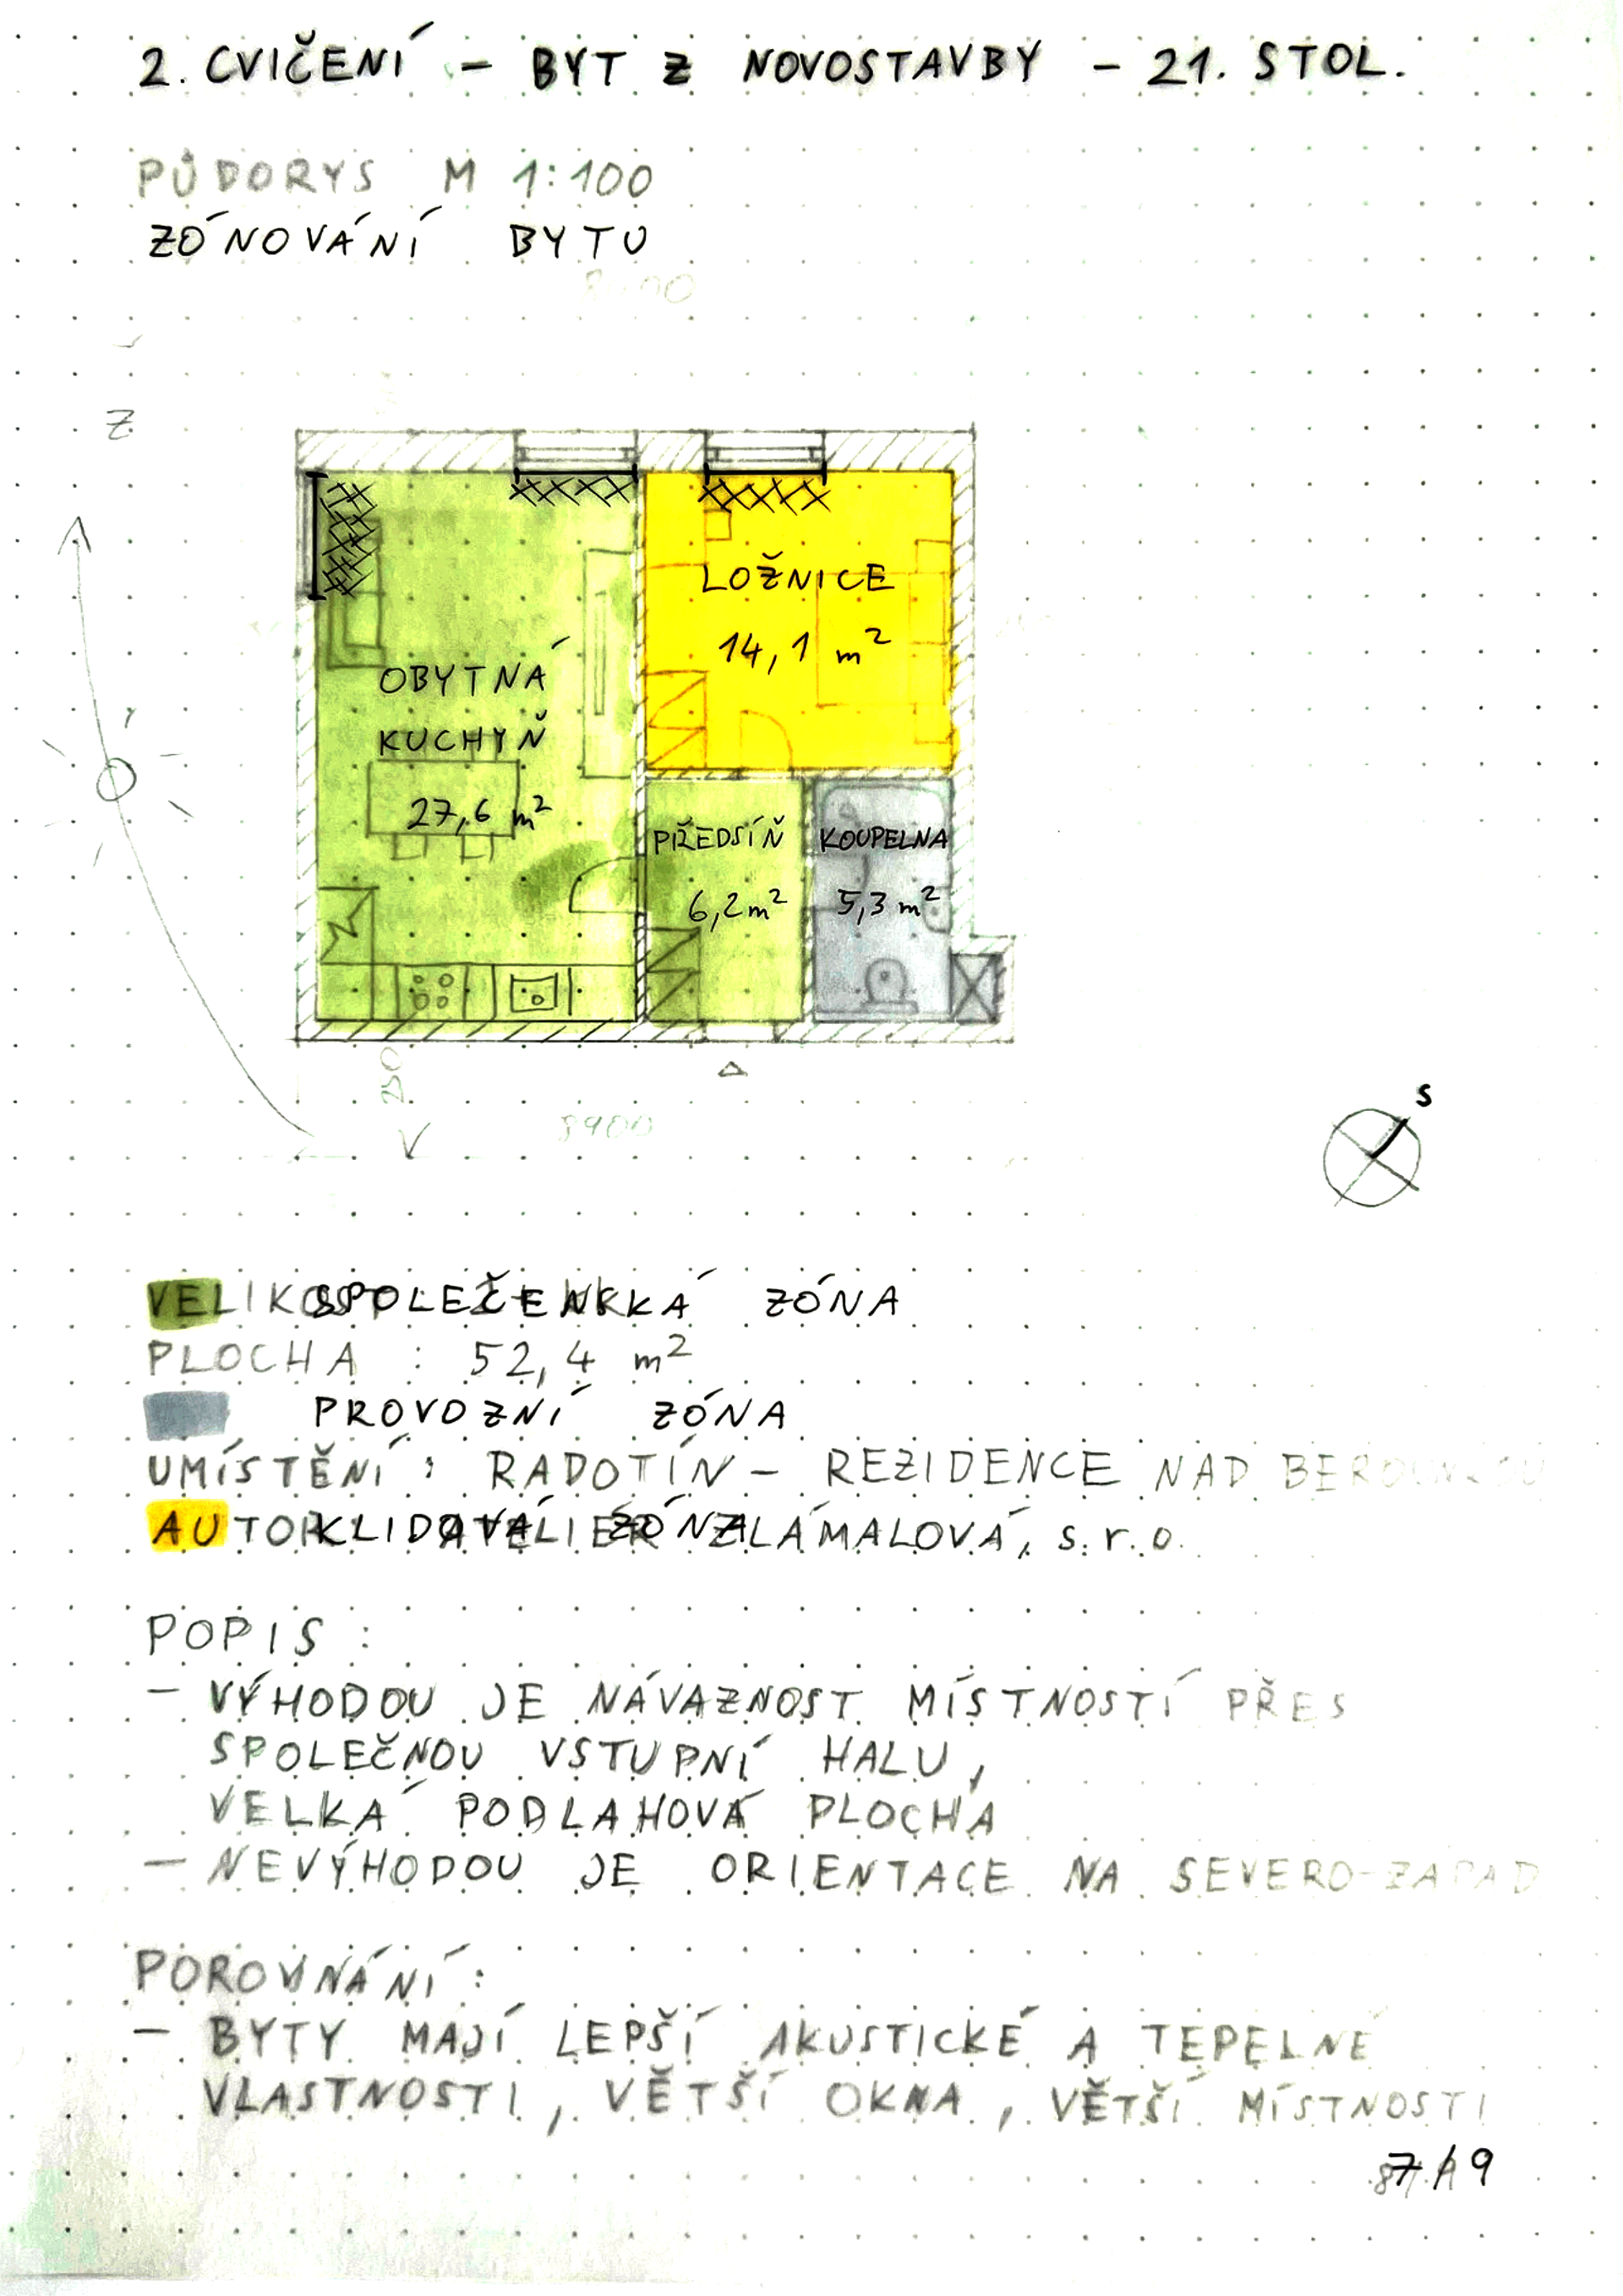 2. CVIČENÍ - BYT Z NOVOSTAVBY - 21. STOL.
PŮDORYS M 1:100
ZÓNOVÁNÍ BYTU
Z
LOŽNICE
14,1 m²
OBYTNÁ
KUCHYŇ
27,6 m²
PŘEDSÍŇ
6,2 m²
KOUPELNA
5,3 m²
V
8900
S
SPOLEČENSKÁ ZÓNA
PLOCHA : 52,4 m²
PROVOZNÍ ZÓNA
UMÍSTĚNÍ : RADOTÍN - REZIDENCE NAD BEROUNKOU
KLIDOVÁ ZÓNA
ZLÁMALOVÁ, s.r.o.
POPIS :
- VÝHODOU JE NÁVAZNOST MÍSTNOSTÍ PŘES
SPOLEČNOU VSTUPNÍ HALU,
VELKÁ PODLAHOVÁ PLOCHA
- NEVÝHODOU JE ORIENTACE NA SEVERO-ZÁPAD
POROVNÁNÍ :
- BYTY MAJÍ LEPŠÍ AKUSTICKÉ A TEPELNÉ
VLASTNOSTI, VĚTŠÍ OKNA, VĚTŠÍ MÍSTNOSTI
7/9